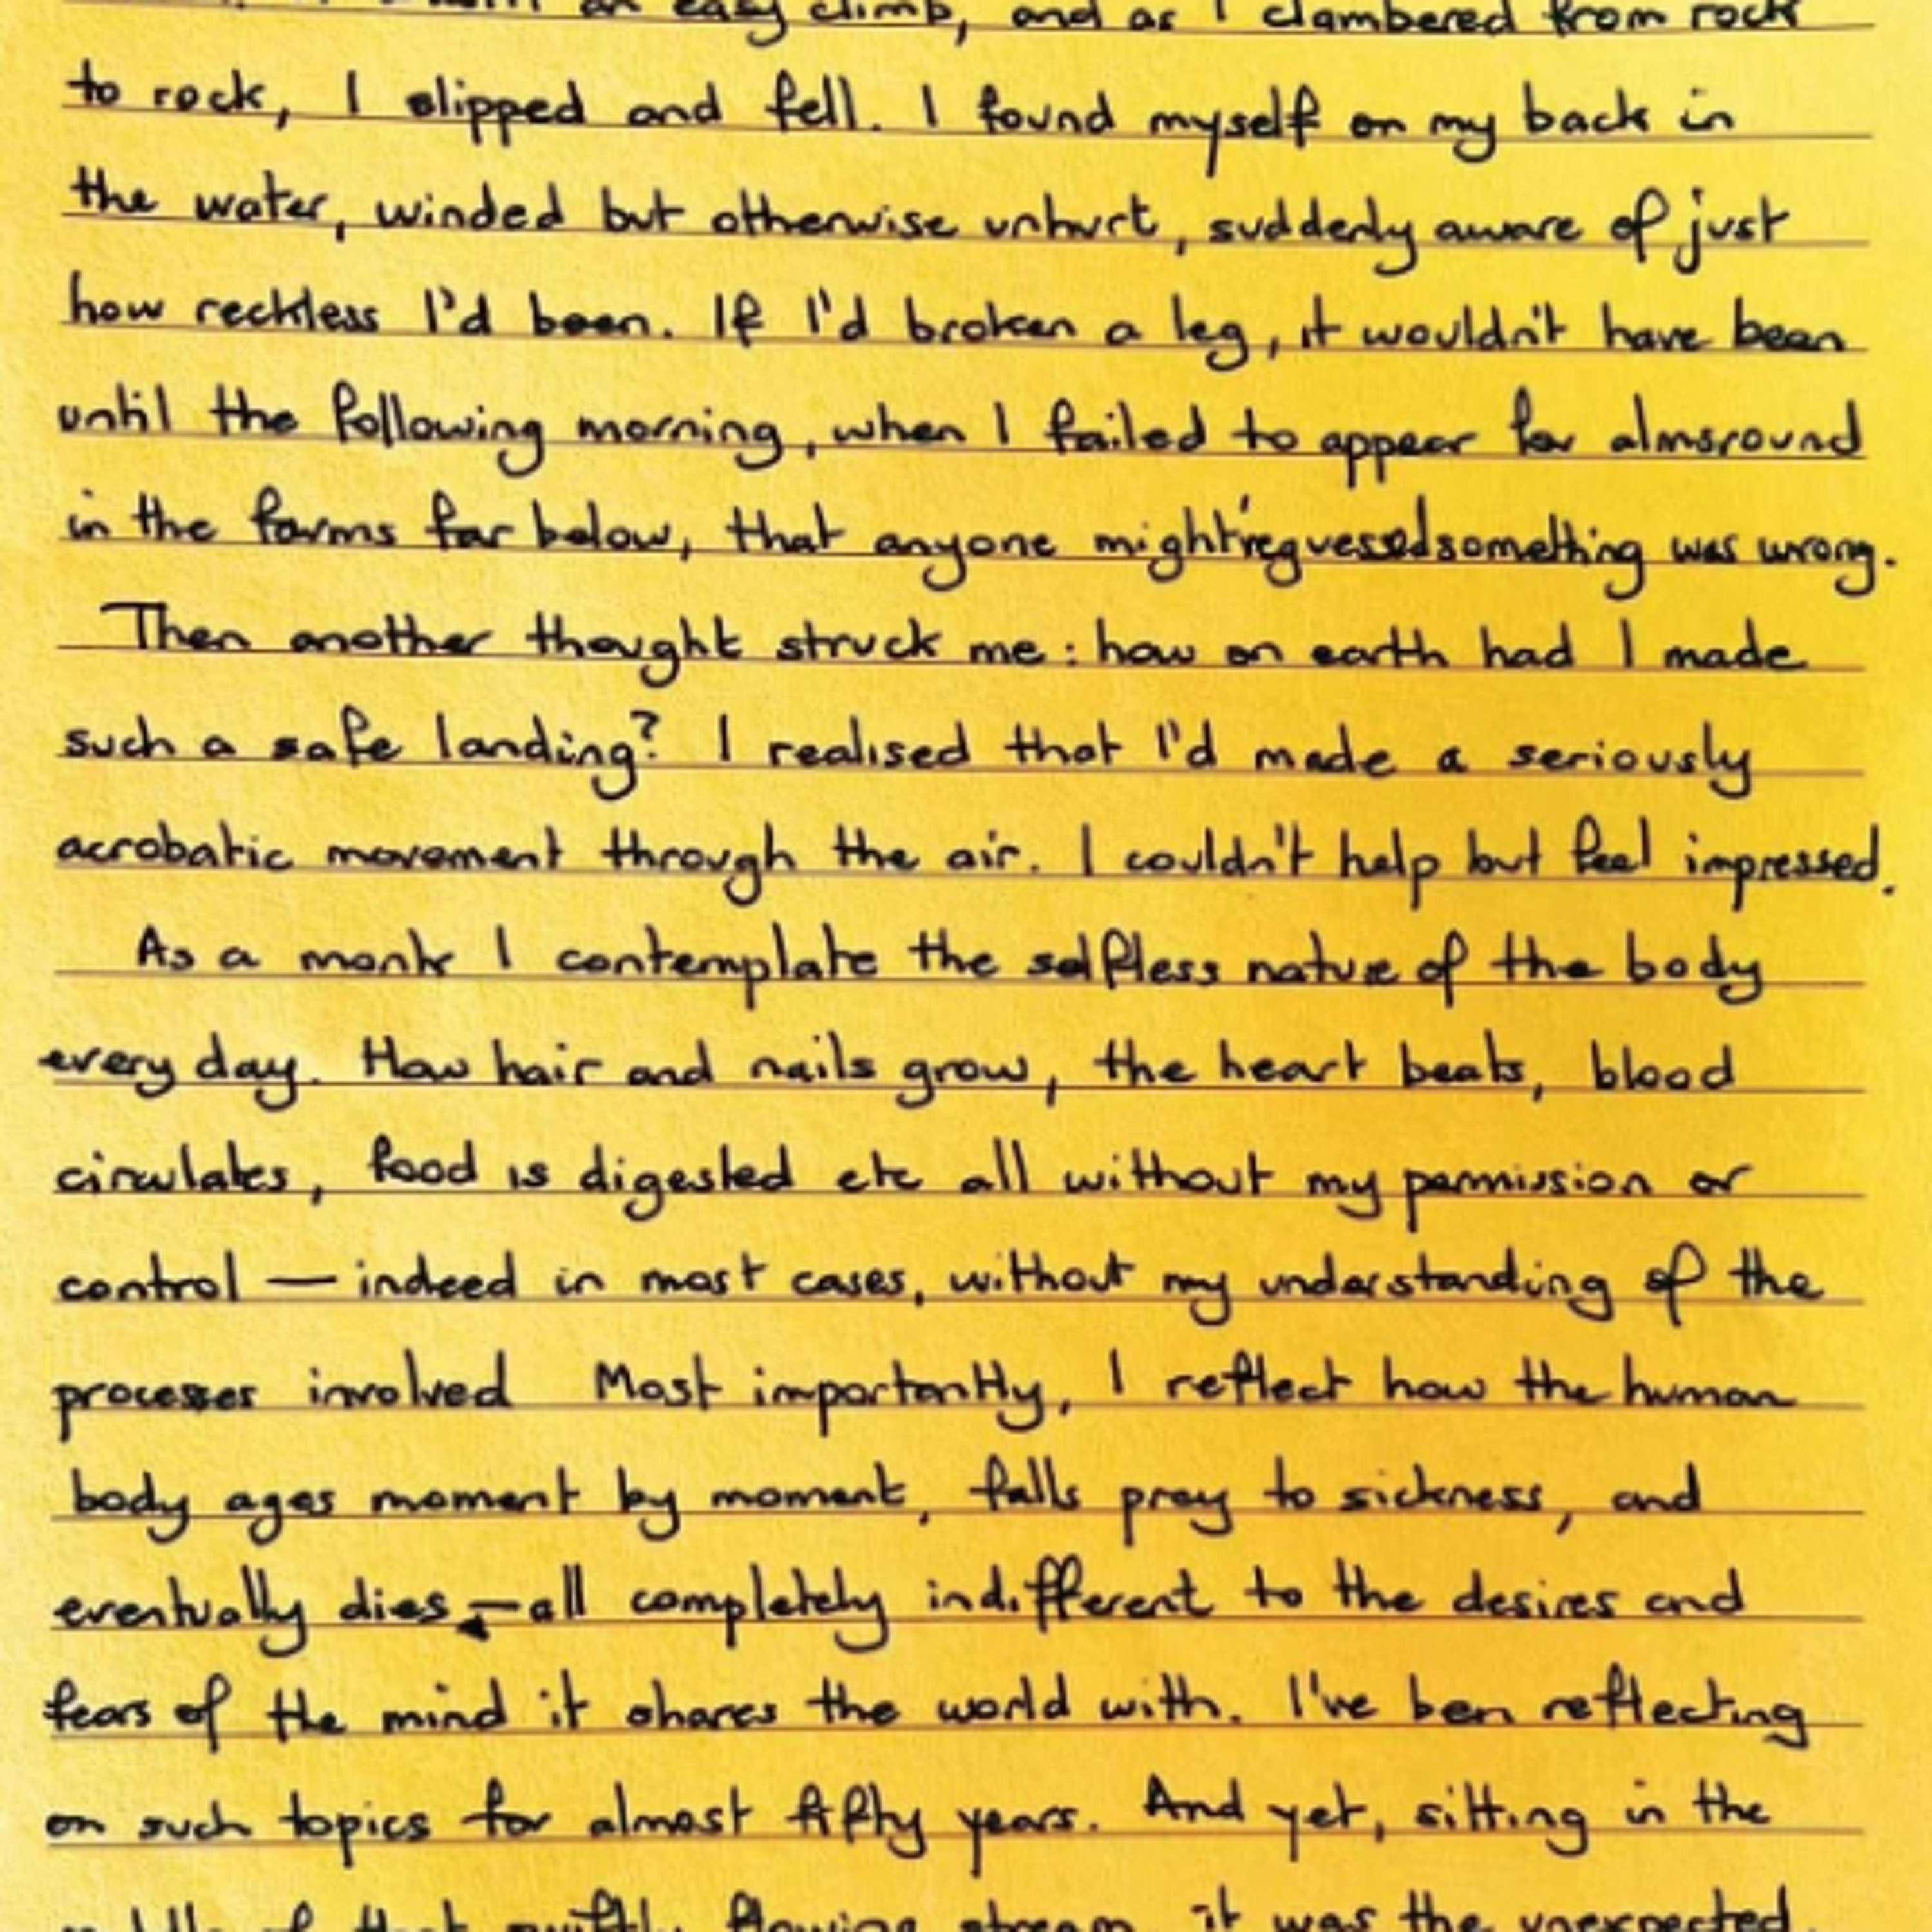 an easy climb, and as I clambered from rock
to rock, I slipped and fell. I found myself on my back in
the water, winded but otherwise unhurt, suddenly aware of just
how reckless I'd been. If I'd broken a leg, it wouldn't have been
until the following morning, when I failed to appear for almsround
in the farms far below, that anyone might've guessed something was wrong.
Then another thought struck me: how on earth had I made
such a safe landing? I realised that I'd made a seriously
acrobatic movement through the air. I couldn't help but feel impressed.
As a monk I contemplate the selfless nature of the body
every day. How hair and nails grow, the heart beats, blood
circulates, food is digested etc all without my permission or
control — indeed in most cases, without my understanding of the
processes involved Most importantly, I reflect how the human
body ages moment by moment, falls prey to sickness, and
eventually dies — all completely indifferent to the desires and
fears of the mind it shares the world with. I've ben reflecting
on such topics for almost fifty years. And yet, sitting in the
middle of that swiftly flowing stream, it was the unexpected